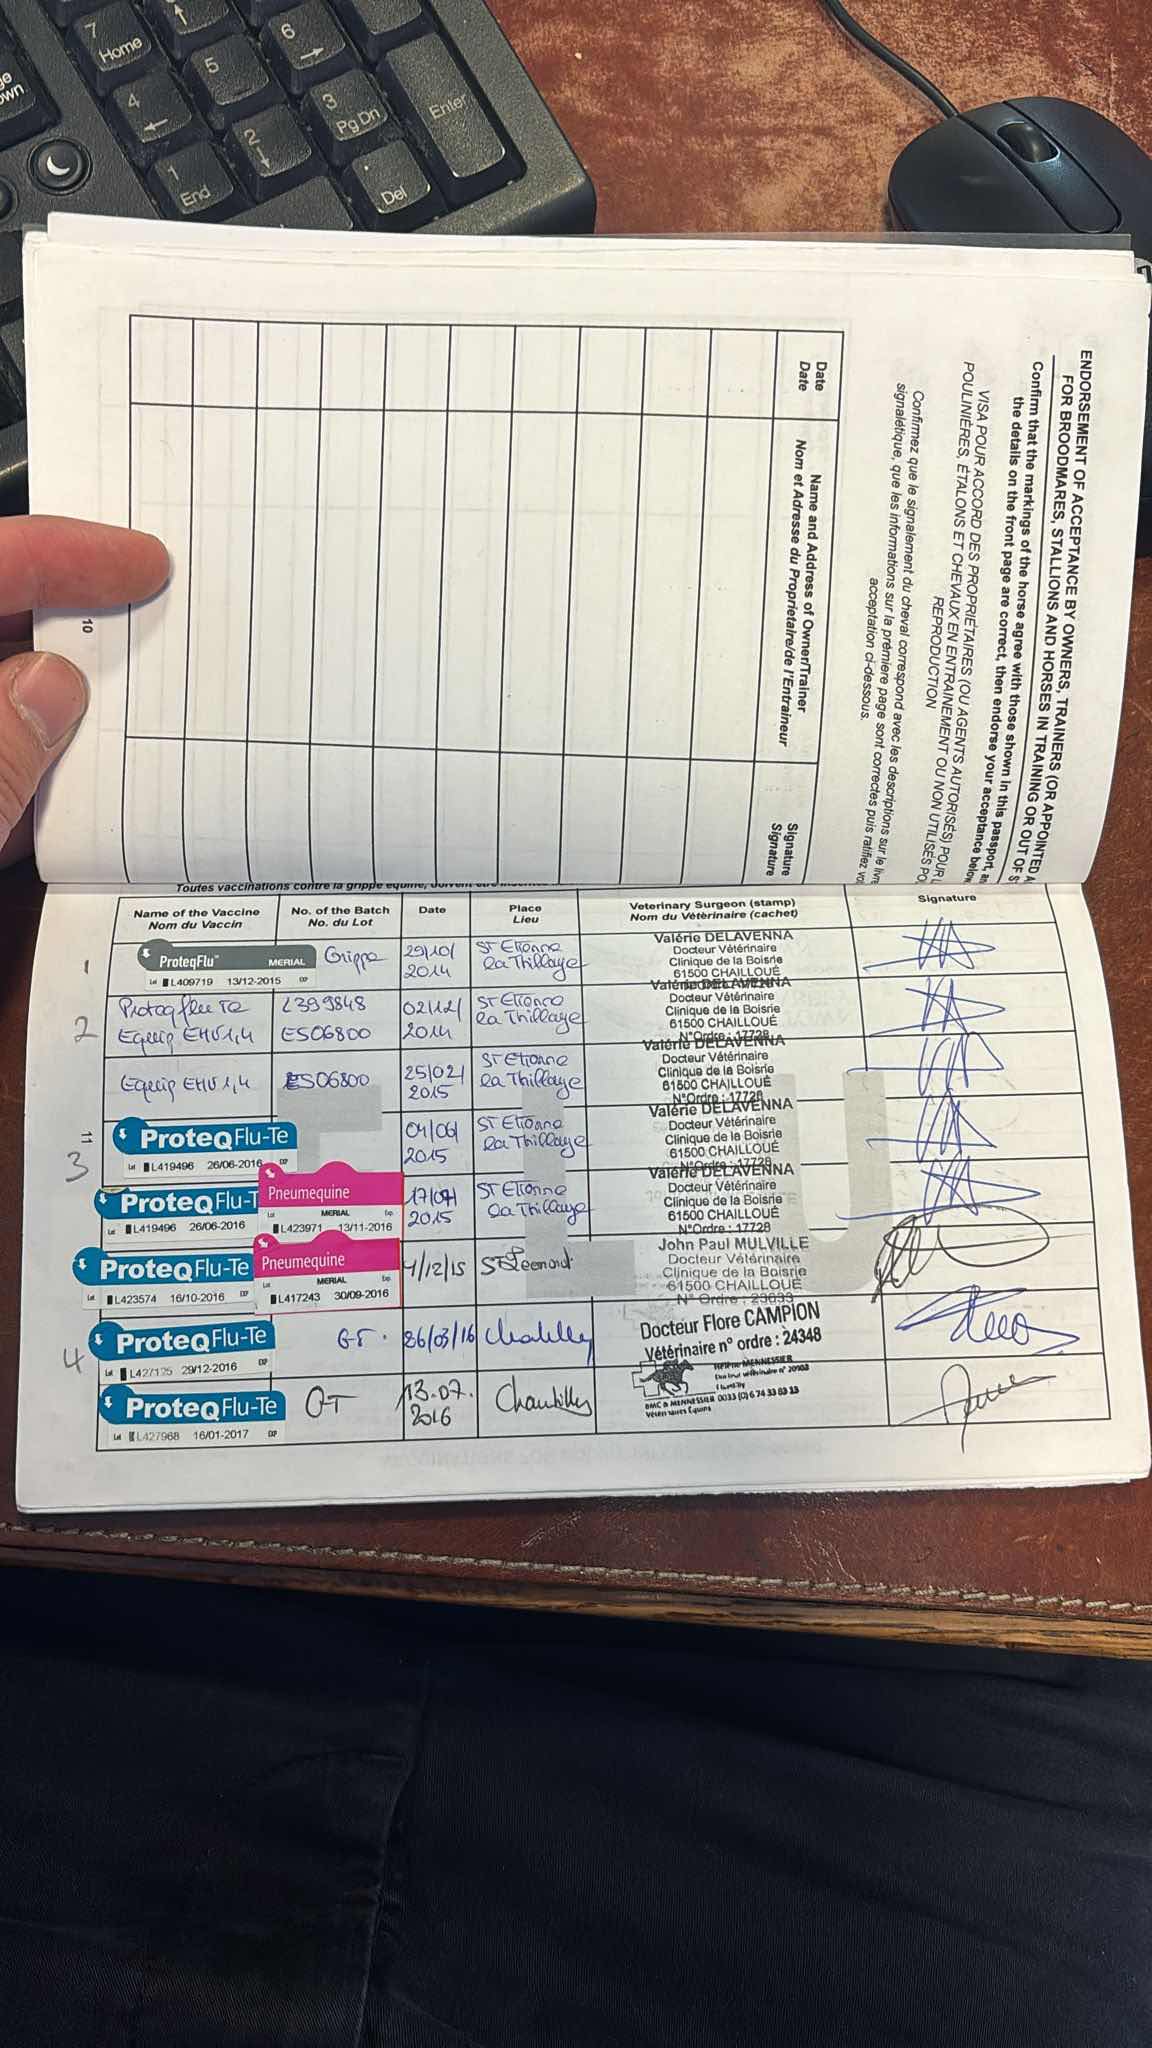 7
Home
6
5
4
3
Pg Dn
Enter
2
1
End
Del
ENDORSEMENT OF ACCEPTANCE BY OWNERS, TRAINERS (OR APPOINTED
FOR BROODMARES, STALLIONS AND HORSES IN TRAINING OR OUT OF
Confirm that the markings of the horse agree with those shown in this passport,
the details on the front page are correct, then endorse your acceptance below
VISA POUR ACCORD DES PROPRIÉTAIRES (OU AGENTS AUTORISÉS) POUR
POULINIÈRES, ÉTALONS ET CHEVAUX EN ENTRAINEMENT OU NON UTILISÉS
REPRODUCTION
Confirmez que le signalement du cheval correspond avec les descriptions sur le
signalétique, que les informations sur la première page sont correctes puis ratifiez
acceptation ci-dessous.
Date Name and Address of Owner/Trainer Signature
Date Nom et Adresse du Propriétaire/de l'Entraîneur Signature
10
Toutes vaccinations contre la grippe équine, doivent être
Name of the Vaccine No. of the Batch Date Place Veterinary Surgeon (stamp) Signature
Nom du Vaccin No. du Lot Lieu Nom du Vétérinaire (cachet)
1 ProteqFlu MERIAL Grippe 29/10/ St Etienne Valérie DELAVENNA
Lot L409719 13/12/2015 EXP 2014 la Thillaye Docteur Vétérinaire
Clinique de la Boisrie
61500 CHAILLOUÉ
2 Proteqflu Te L399848 02/12/ St Etienne Valérie DELAVENNA
Equip EHV1,4 ES06800 2014 la Thillaye Docteur Vétérinaire
Clinique de la Boisrie
61500 CHAILLOUÉ
N°Ordre : 17728
Equip EHV1,4 ES06800 25/02/ St Etienne Valérie DELAVENNA
2015 la Thillaye Docteur Vétérinaire
Clinique de la Boisrie
61500 CHAILLOUÉ
N°Ordre : 17728
11
3 ProteqFlu-Te 04/06/ St Etienne Valérie DELAVENNA
Lot L419496 26/06/2016 EXP 2015 la Thillaye Docteur Vétérinaire
Clinique de la Boisrie
61500 CHAILLOUÉ
N°Ordre : 17728
ProteqFlu-T Pneumequine St Etienne Valérie DELAVENNA
Lot L419496 26/06/2016 Lot MERIAL Exp. L423971 13/11/2016 2015 la Thillaye Docteur Vétérinaire
Clinique de la Boisrie
61500 CHAILLOUÉ
N°Ordre : 17728
ProteqFlu-Te Pneumequine /12/15 John Paul MULVILLE
Lot L423574 16/10/2016 EXP Lot MERIAL Exp. L417243 30/09/2016 Docteur Vétérinaire
Clinique de la Boisrie
61500 CHAILLOUÉ
N° Ordre : 23033
4 ProteqFlu-Te G.T. 26/03/16 Chantilly Docteur Flore CAMPION
Lot L427125 29/12/2016 EXP Vétérinaire n° ordre : 24348
ProteqFlu-Te GT 13.07. Chantilly MENNESSIER
Lot L427968 16/01/2017 EXP 2016 Docteur vétérinaire n°
Chantilly
BMC & MENNESSIER 0033 (0)6 74 33 83 13
Vétérinaires Équins